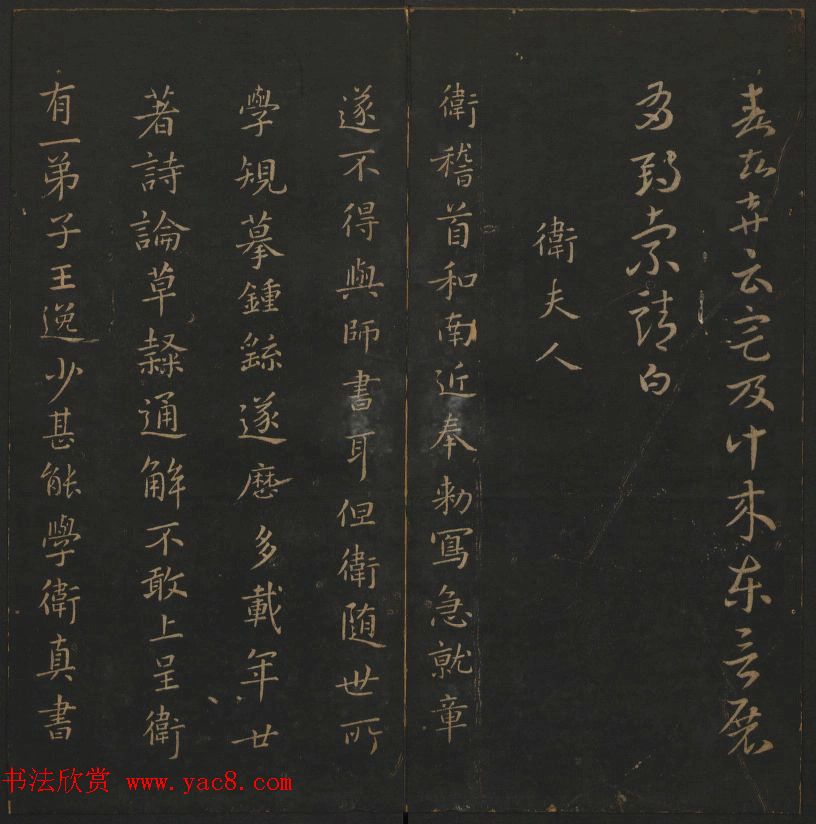 云宅及
索靖白
衛夫人
衛稽首和南近奉勅寫急就章
遂不得與師書耳但衛随世所
學規摹鍾繇遂歷多載年廿
著詩論草隸通解不敢上呈衛
有一弟子王逸少甚能學衛真書
书法欣赏 www.yac8.com